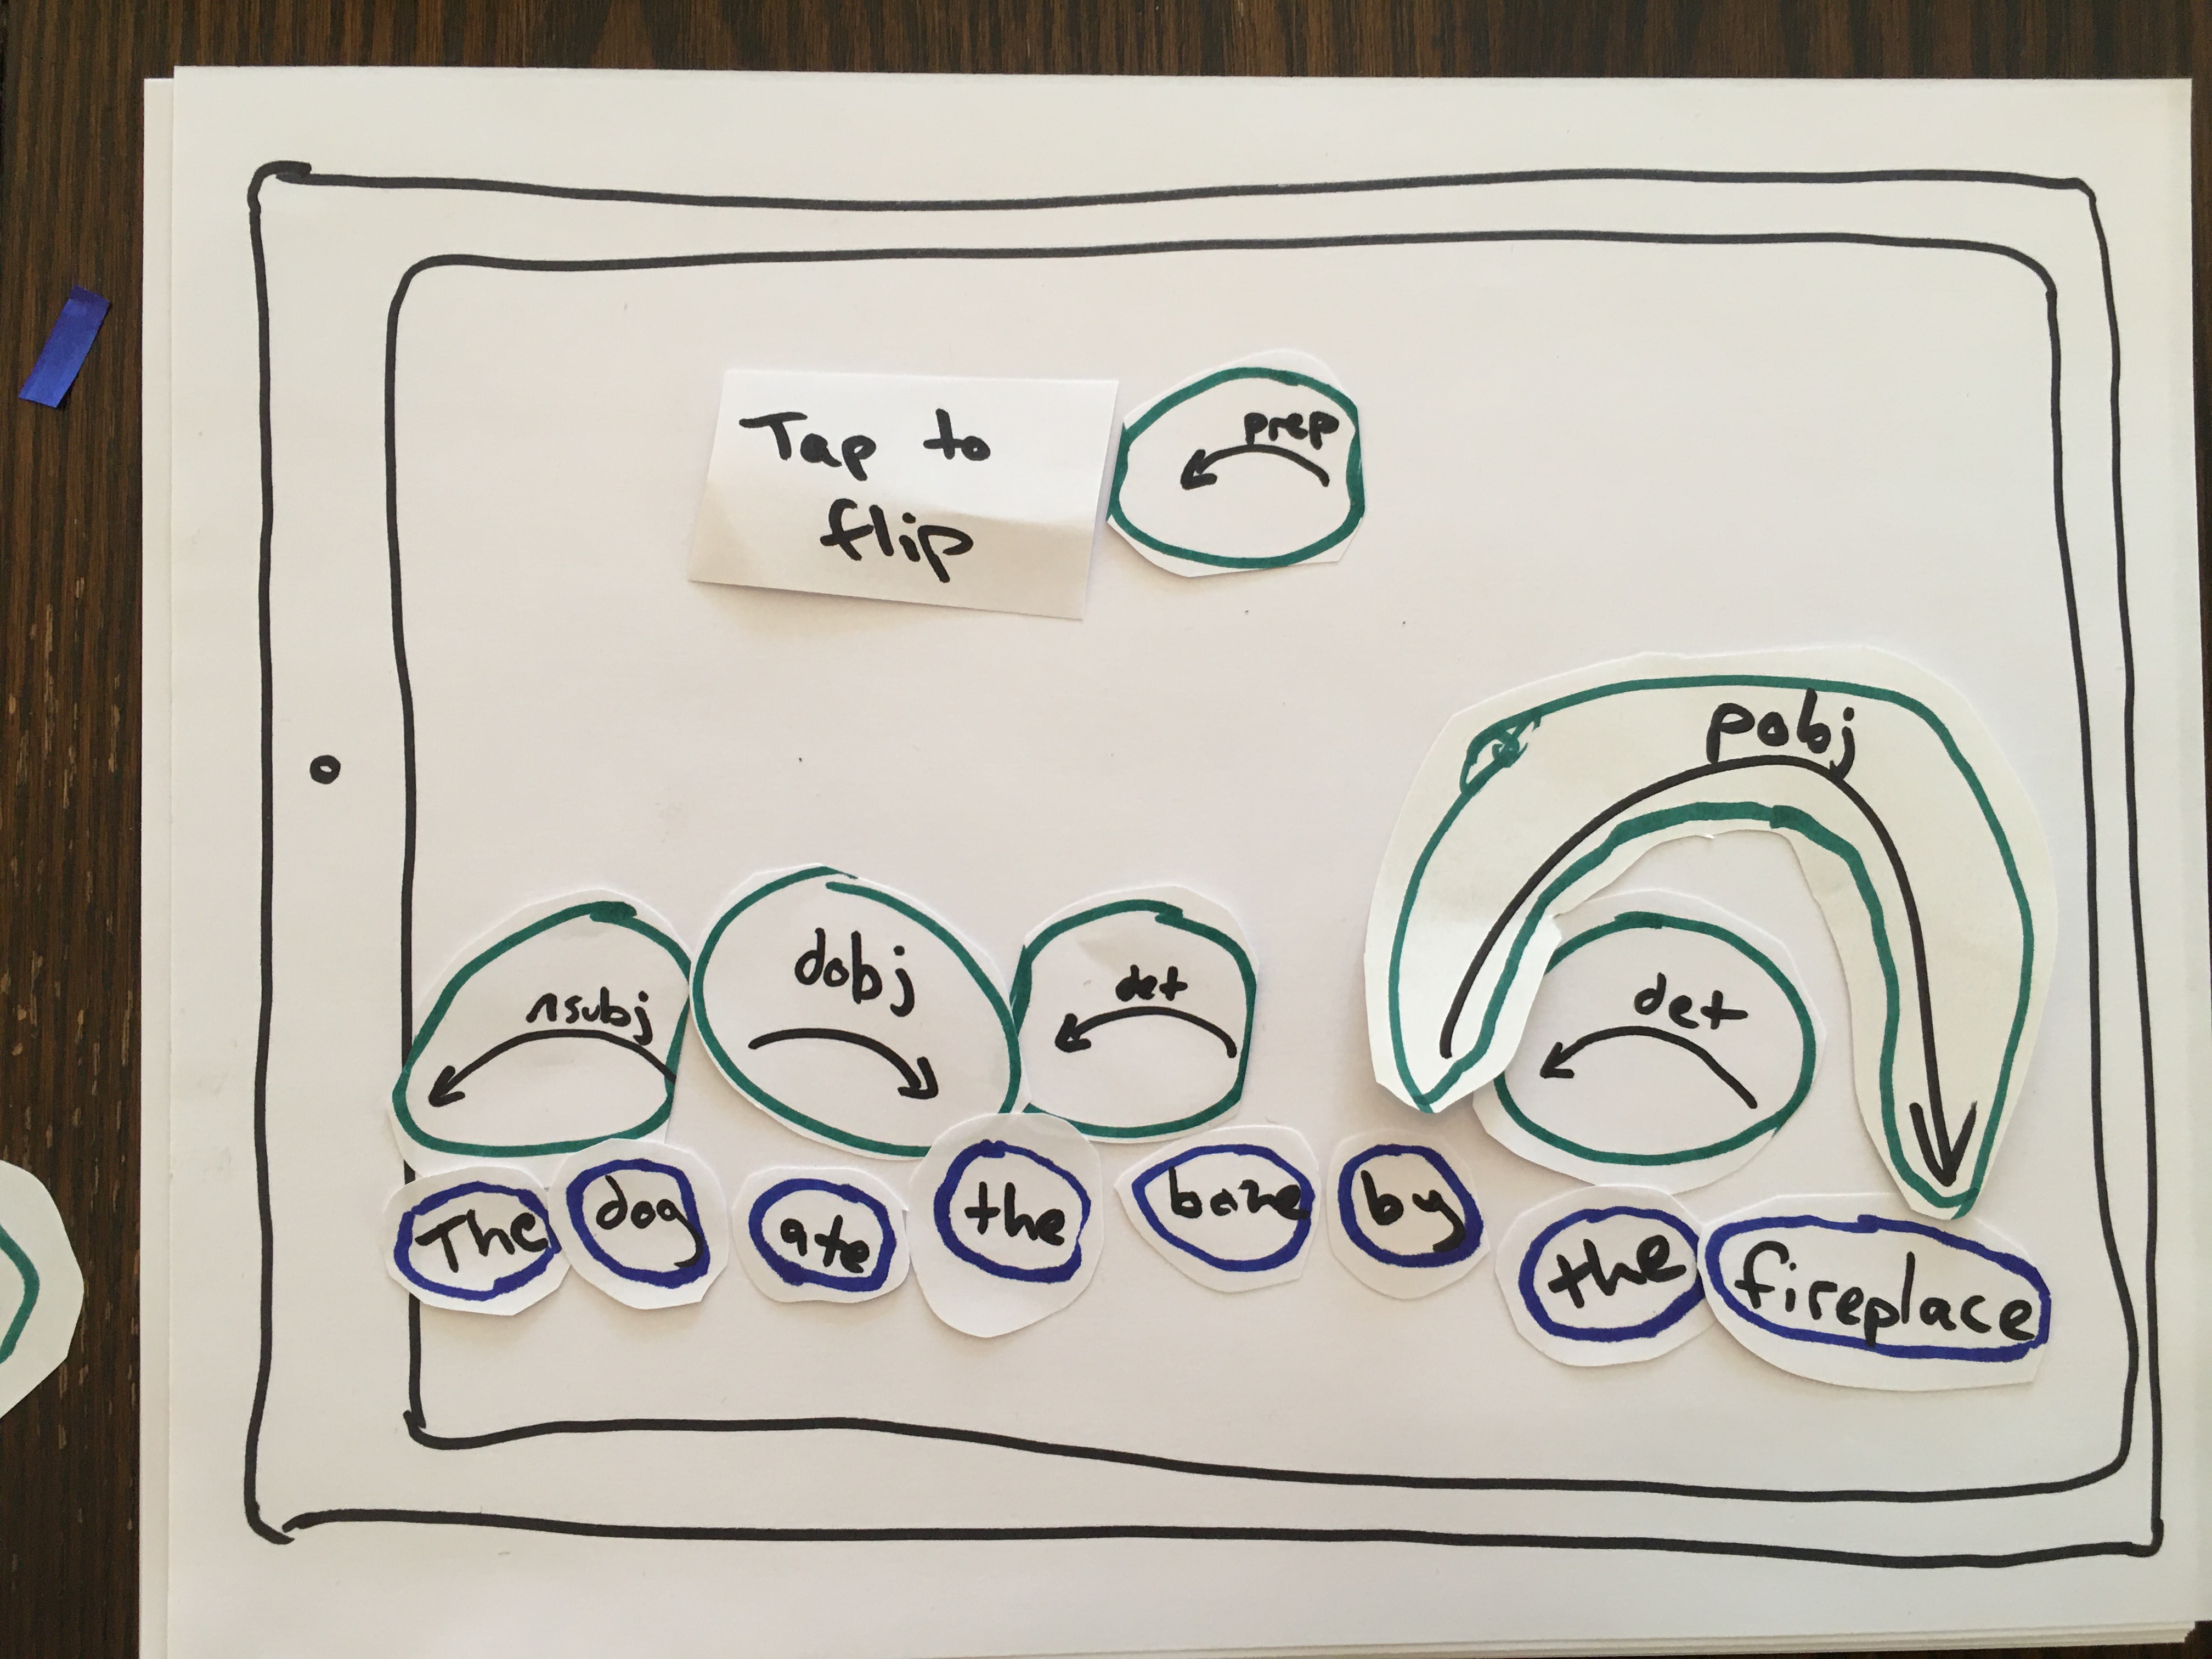 Tap to
flip
prep
pobj
nsubj
dobj
det
det
The dog ate the bone by the fireplace